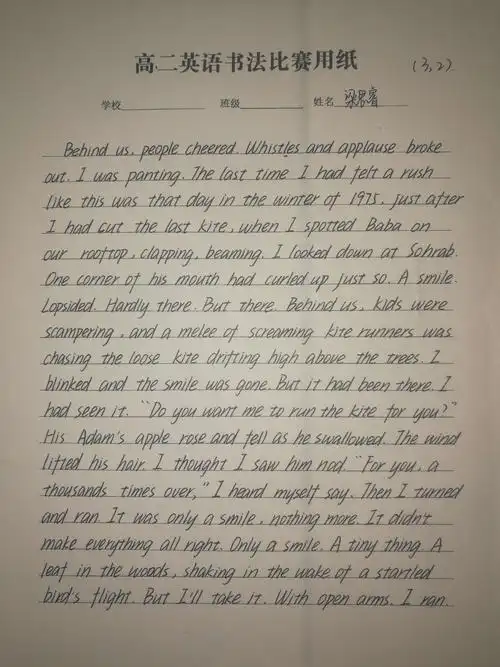 高二英语书法比赛用纸
(3,2)
学校 班级 姓名 梁思睿
Behind us, people cheered. Whistles and applause broke
out. I was panting. The last time I had felt a rush
like this was that day in the winter of 1975, just after
I had cut the last kite, when I spotted Baba on
our rooftop, clapping, beaming. I looked down at Sohrab.
One corner of his mouth had curled up just so. A smile.
Lopsided. Hardly there. But there. Behind us, kids were
scampering, and a melee of screaming kite runners was
chasing the loose kite drifting high above the trees. I
blinked and the smile was gone. But it had been there. I
had seen it. "Do you want me to run the kite for you?"
His Adam's apple rose and fell as he swallowed. The wind
lifted his hair. I thought I saw him nod. "For you, a
thousands times over," I heard myself say. Then I turned
and ran. It was only a smile, nothing more. It didn't
make everything all right. Only a smile. A tiny thing. A
leaf in the woods, shaking in the wake of a startled
bird's flight. But I'll take it. With open arms. I ran.